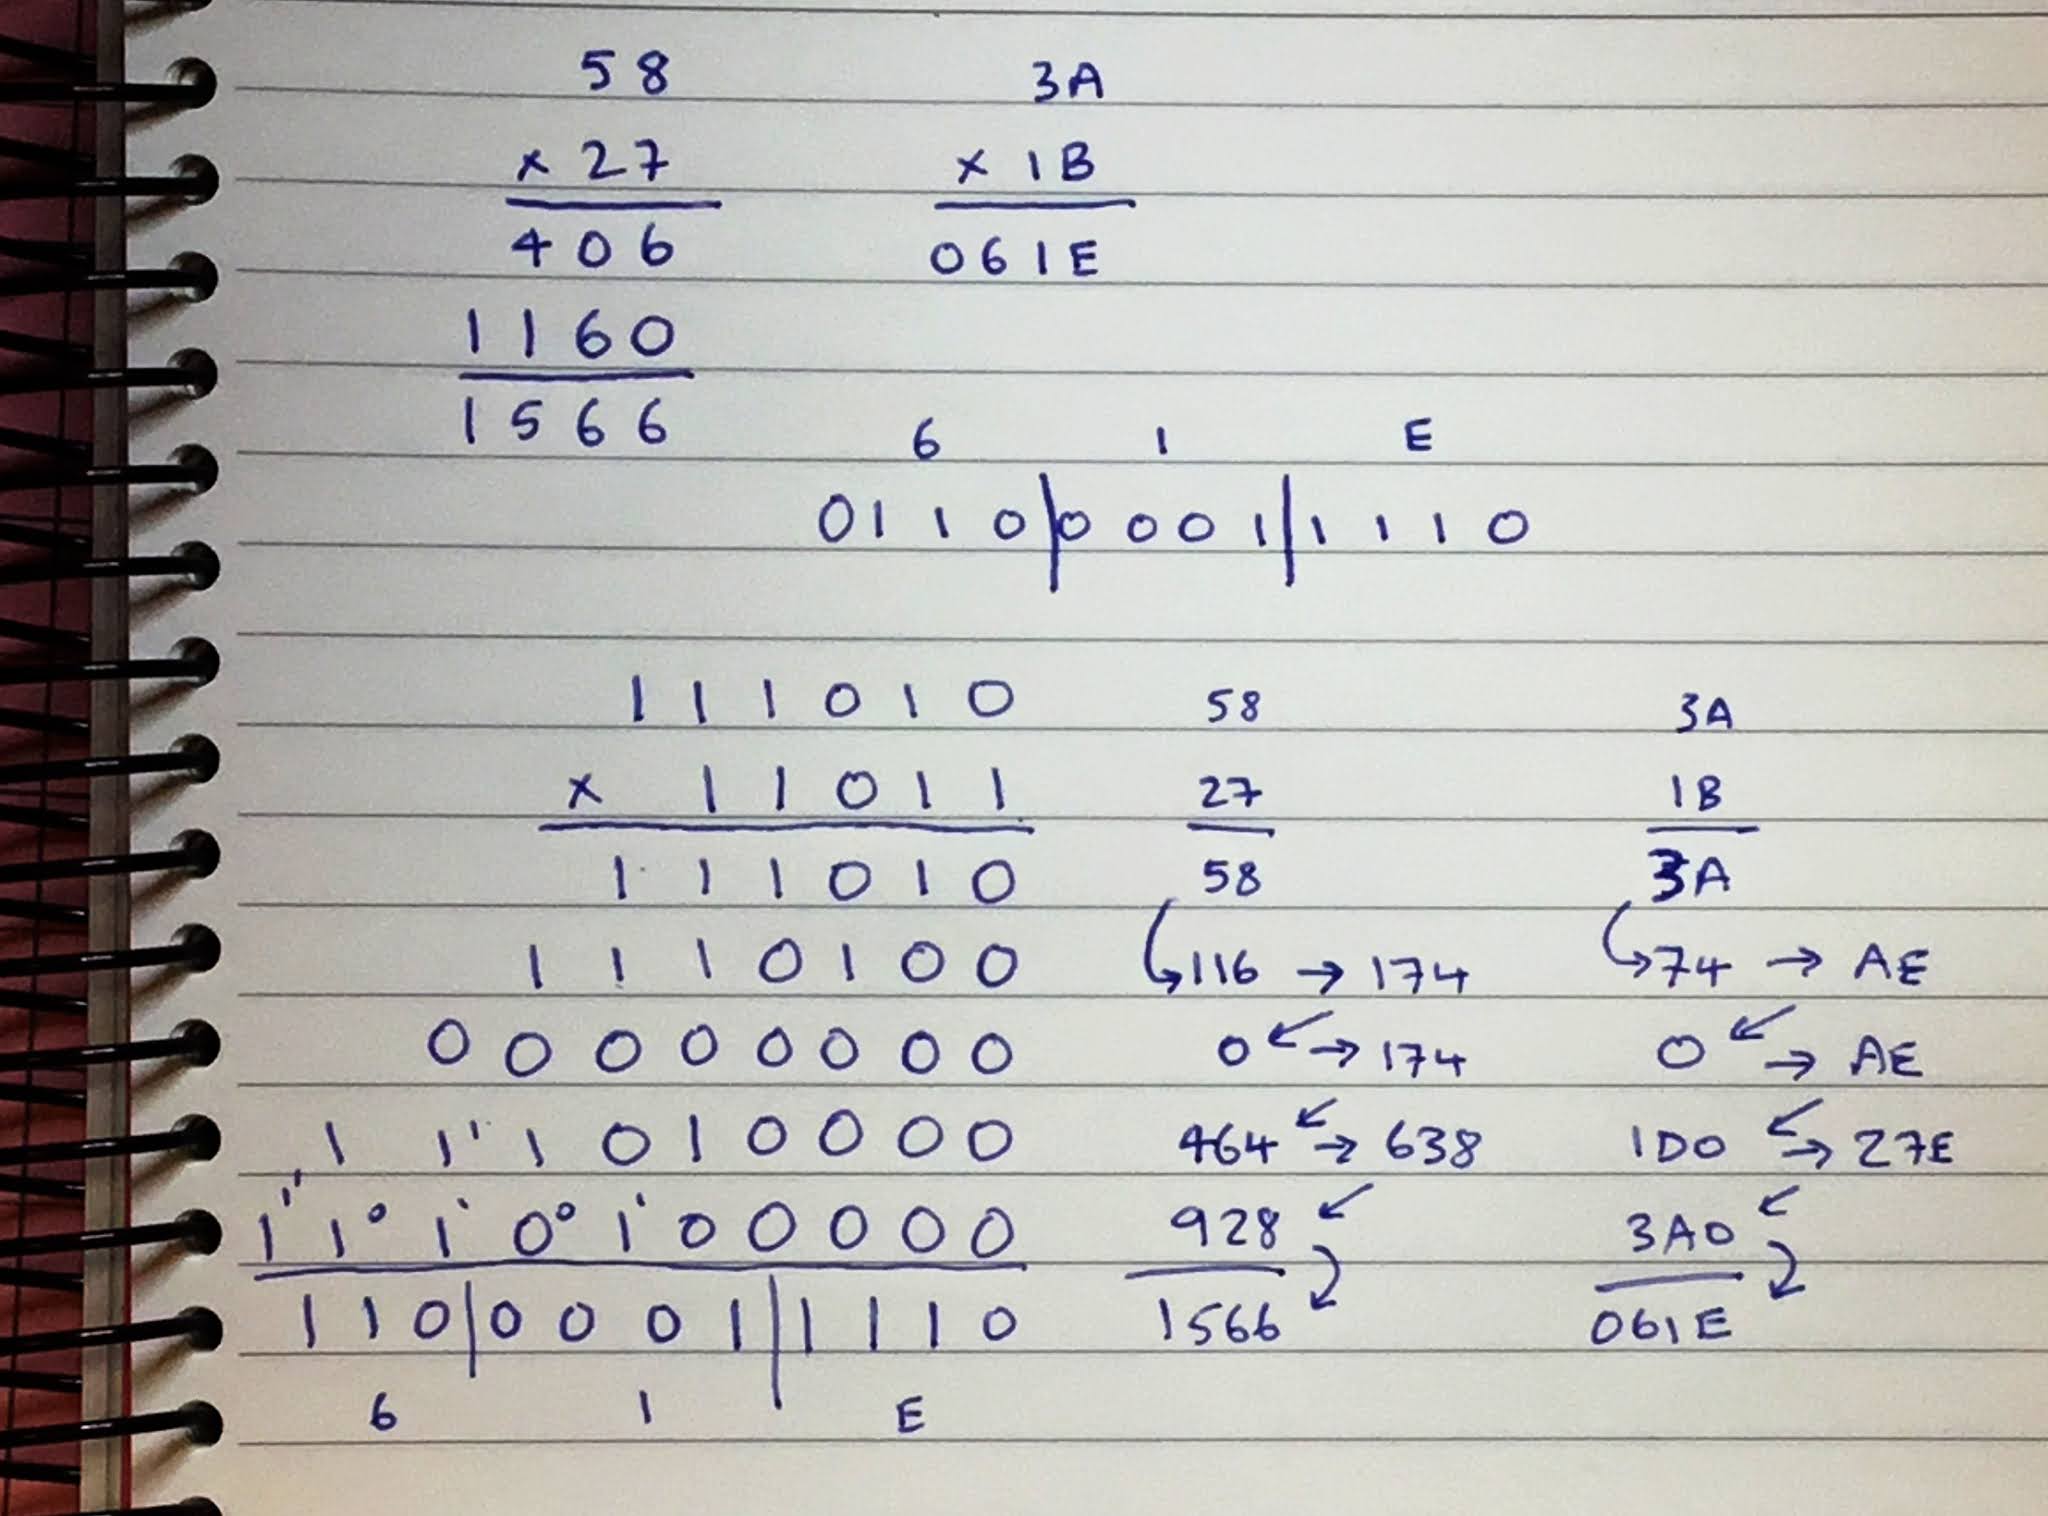 58 3A
x 27 x 1B
406 061E
1160
1566
6 1 E
0110|0001|1110
111010 58 3A
x 11011 27 1B
111010 58 3A
1110100 116 → 174 74 → AE
00000000 0 → 174 0 → AE
111010000 464 → 638 1D0 → 27E
1110100000 928 3A0
110|0001|1110 1566 061E
6 1 E